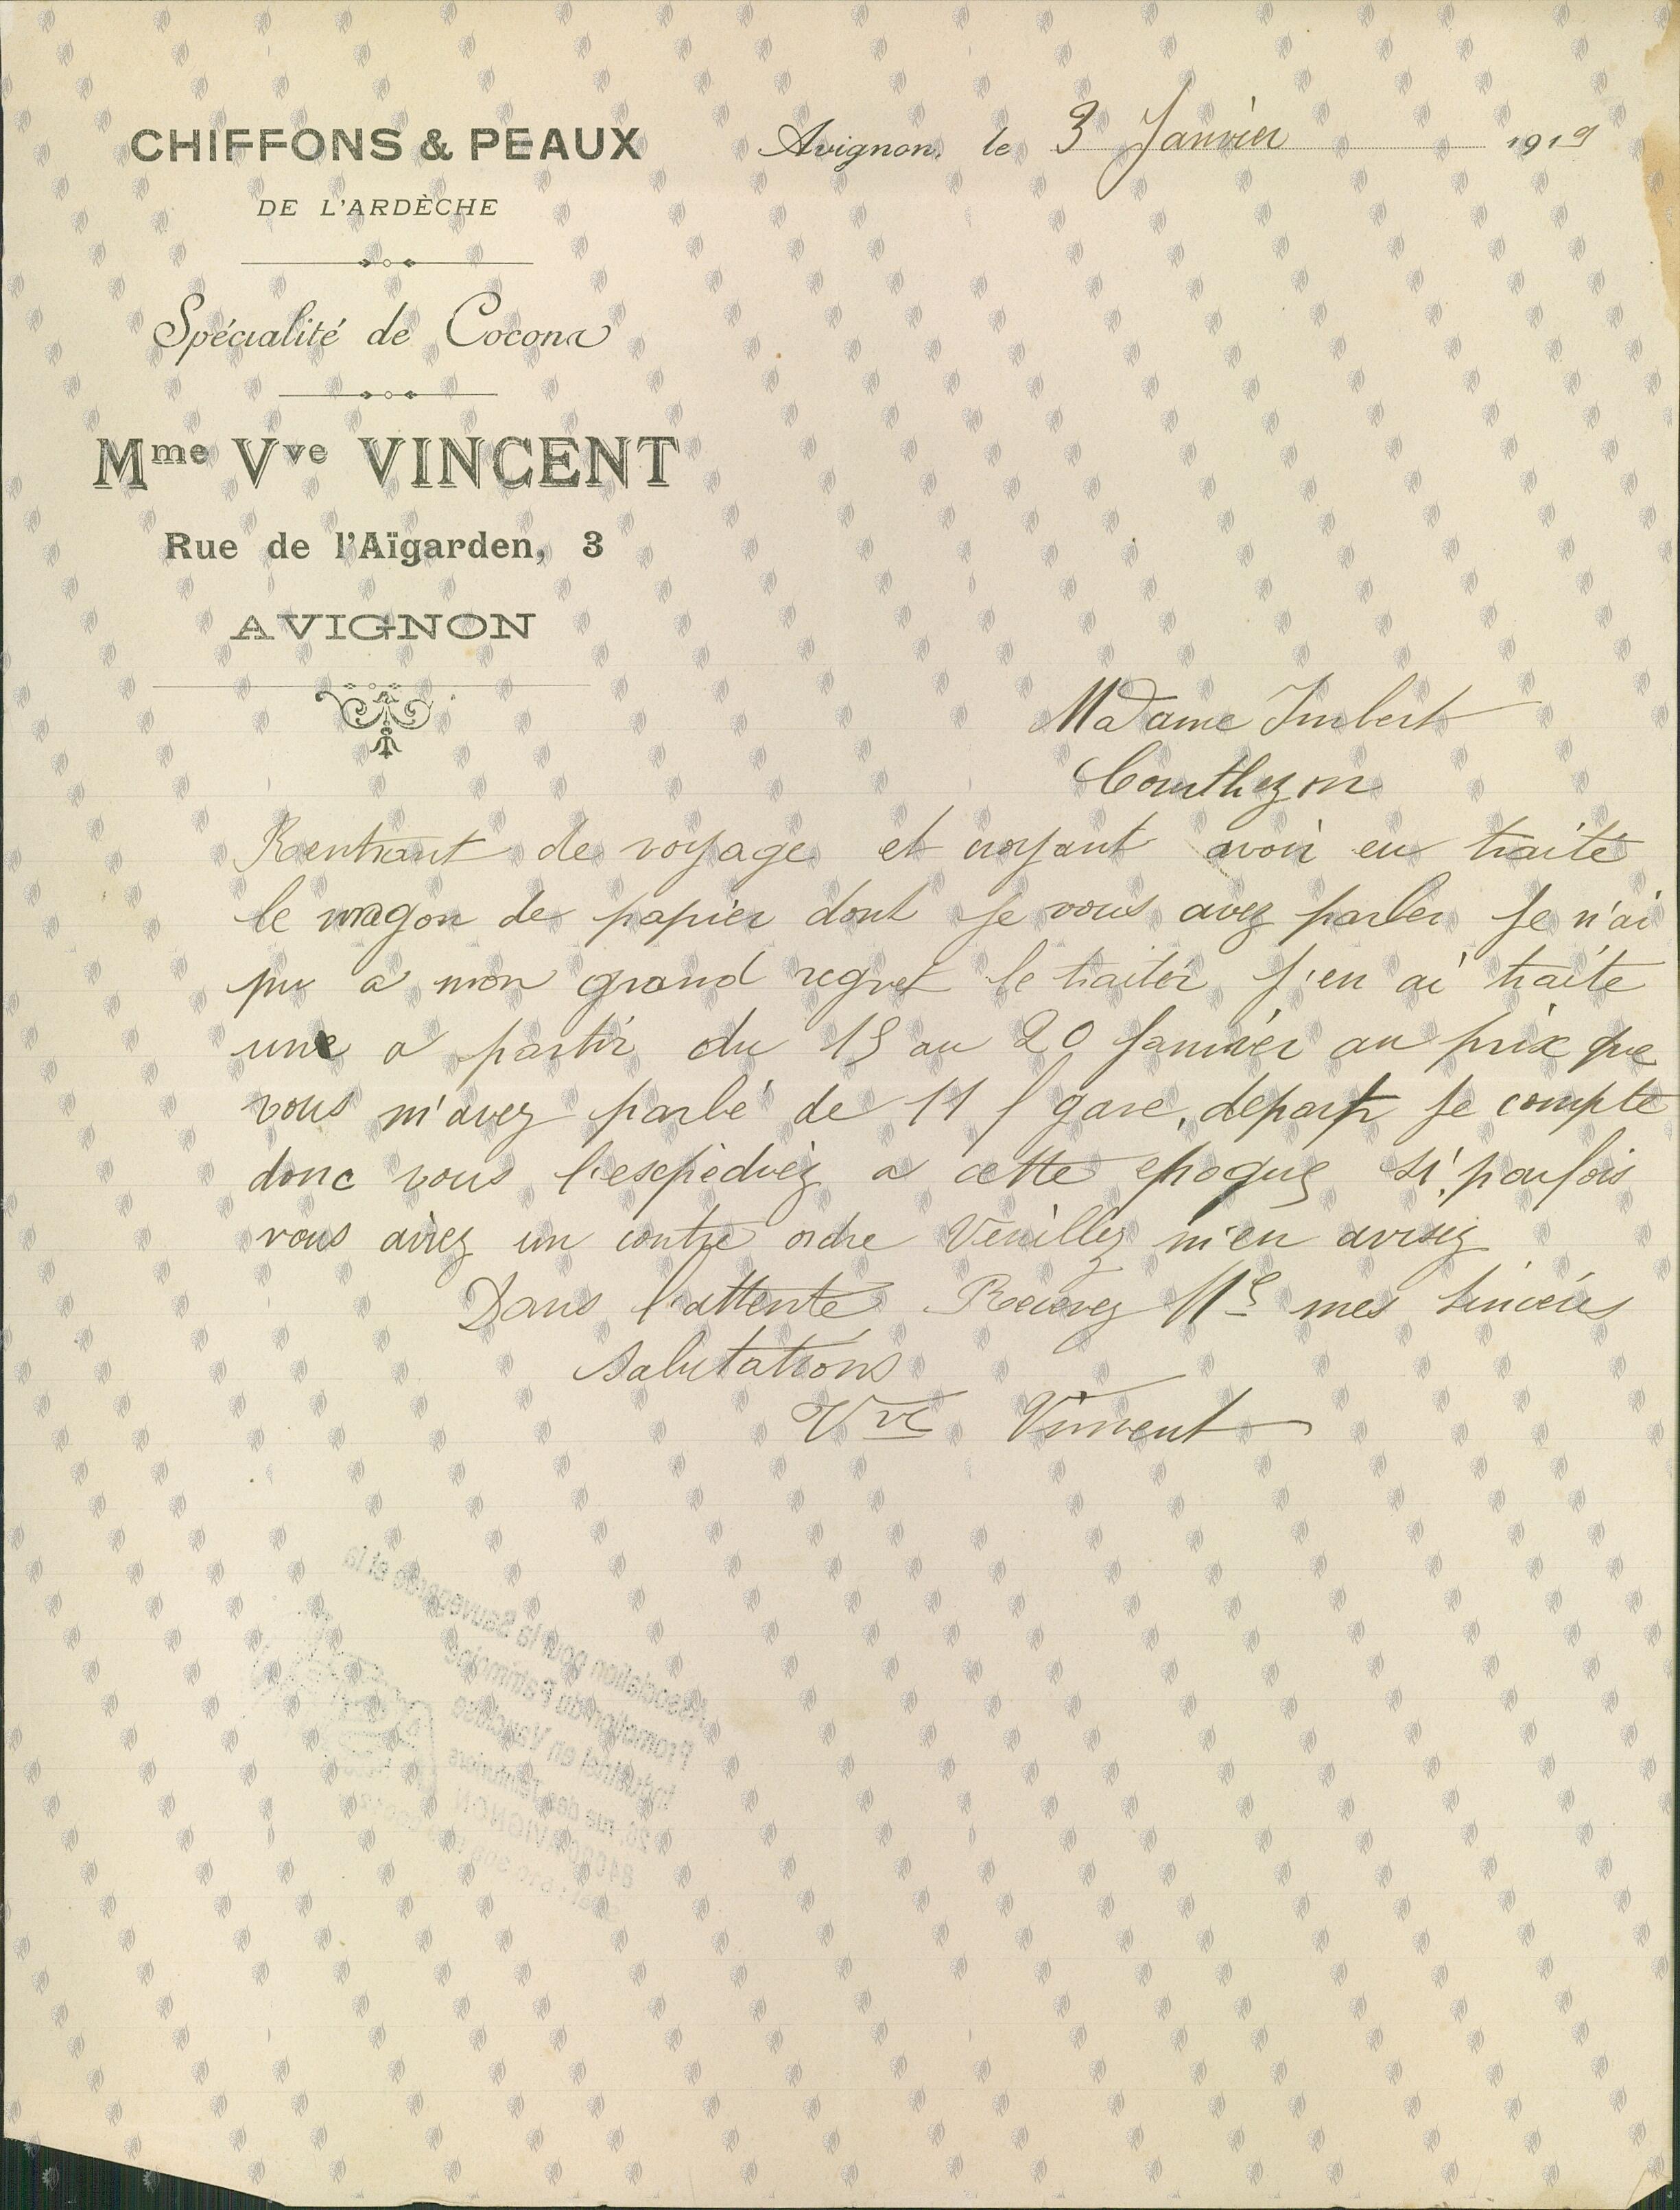 CHIFFONS & PEAUX
DE L'ARDÈCHE
Spécialité de Cocons
Mme Vve VINCENT
Rue de l'Aïgarden, 3
AVIGNON
Avignon, le 3 Janvier 1919
Madame Imbert
Courthezon
Rentrant de voyage et croyant avoir eu traité
le wagon de papier dont je vous avez parler je n'ai
pu a mon grand regret le traiter j'en ai traite
une a partir du 15 au 20 janvier au prix que
vous m'avez parlé de 11 f gare, depart je compte
donc vous l'expèdiéz a cette epoque si parfois
vous aviez un contre ordre Veuillez m'en avisez
Dans l'attente Recevez Me mes sincéres
salutations
Vve Vincent
Association pour la Sauvegarde et la
Promotion du Patrimoine
Industriel en Vaucluse
26, rue des Teinturiers
84000 AVIGNON